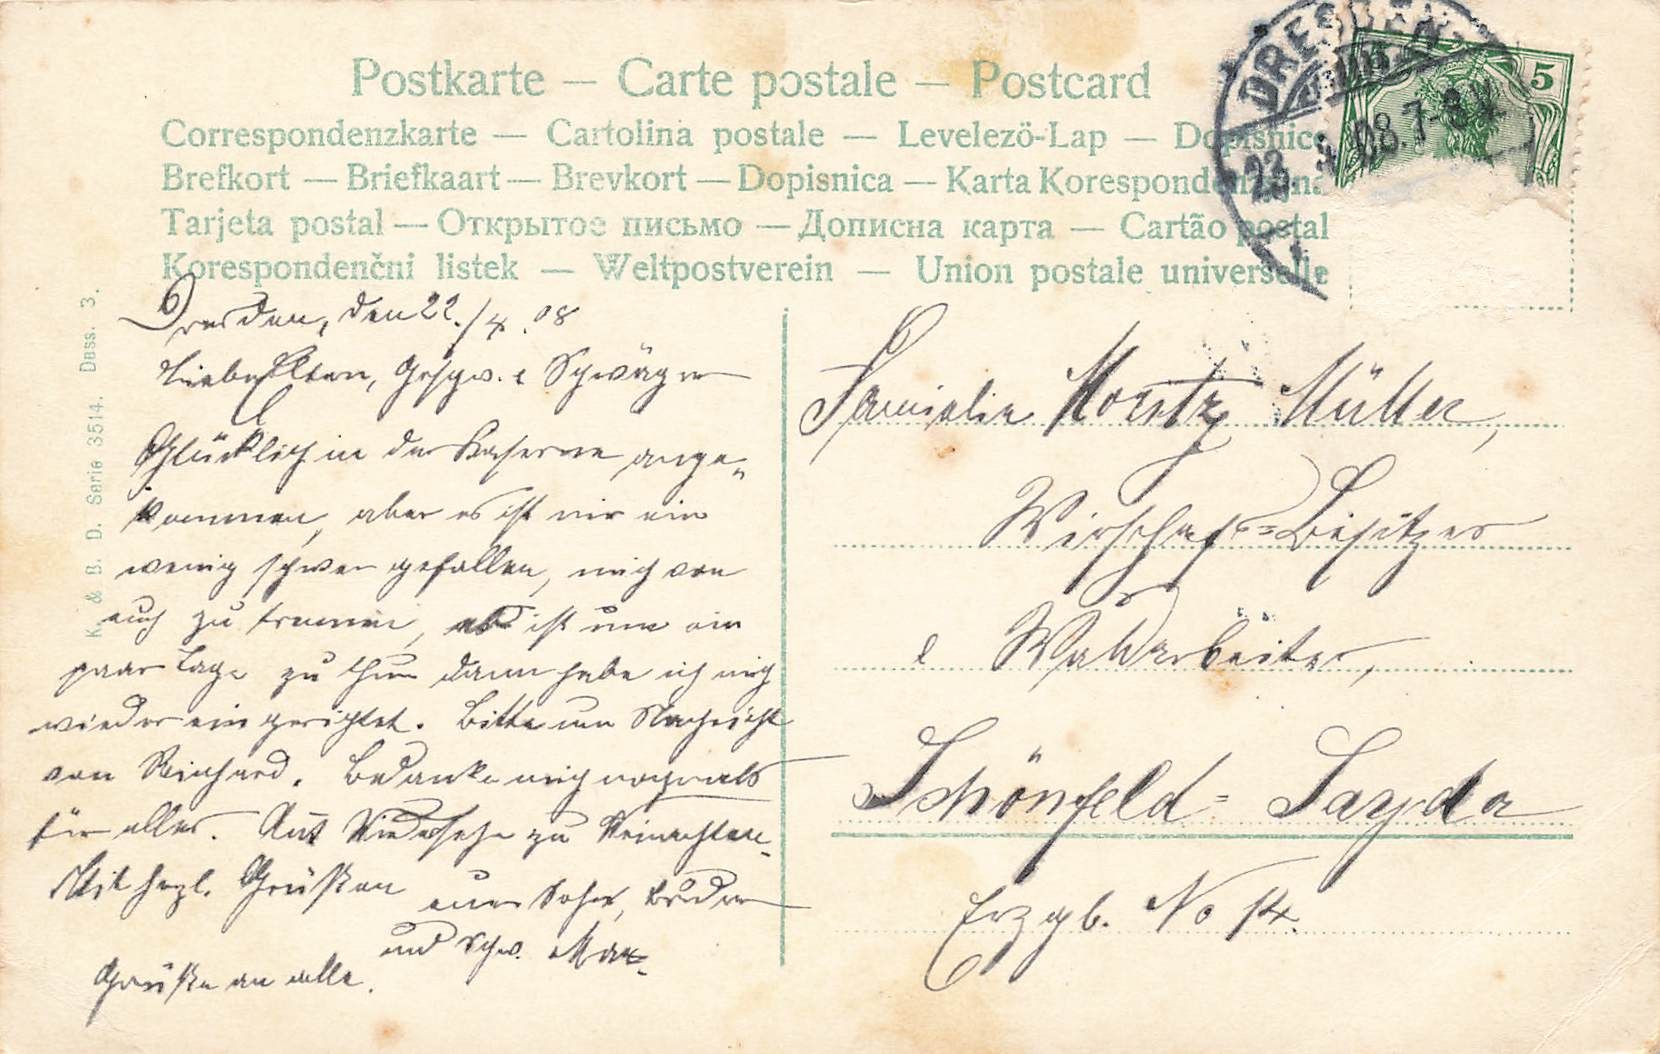 Postkarte — Carte postale — Postcard
Correspondenzkarte — Cartolina postale — Levelezö-Lap — Dopisnice
Brefkort — Briefkaart — Brevkort — Dopisnica — Karta Korespondencyjna
Tarjeta postal — Открытое письмо — Дописна карта — Cartão postal
Korespondenčni listek — Weltpostverein — Union postale universelle
DRESDEN
23 4 08. 7-8 V.
5
K. & B. D. Serie 3514. Dess. 3.
Dresden, den 22./4. 08
Liebe Eltern, Geschw. & Schwäger
Glücklich in der Kaserne ange-
kommen, aber es ist mir ein
wenig schwer gefallen, mich von
euch zu trennen, es ist nur ein
paar Tage zu thun dann habe ich mich
wieder eingerichtet. Bitte um Nachricht
von Reinhard. Bedanke mich nochmals
für alles. Auf Wiedersehn zu Weinachten.
Mit hrzl. Grüßen euer Sohn, Bruder
und Schw. Max.
Grüße an alle.
Familie Moritz Müller,
Wirschafs=Besitzer
& Waldarbeiter,
Schönfeld=Sayda
Erzgb. No 14.